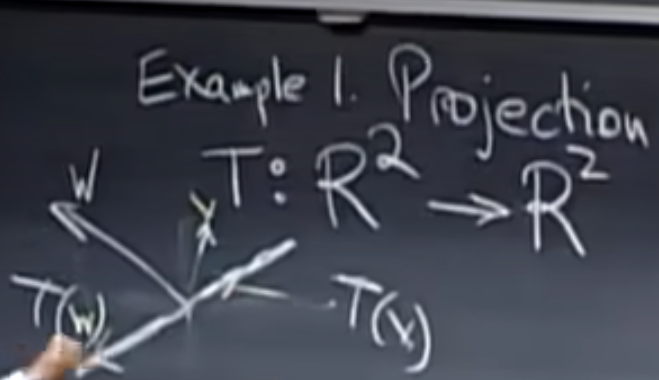 Example 1. Projection
T: R² → R²
W
V
T(W)
T(V)